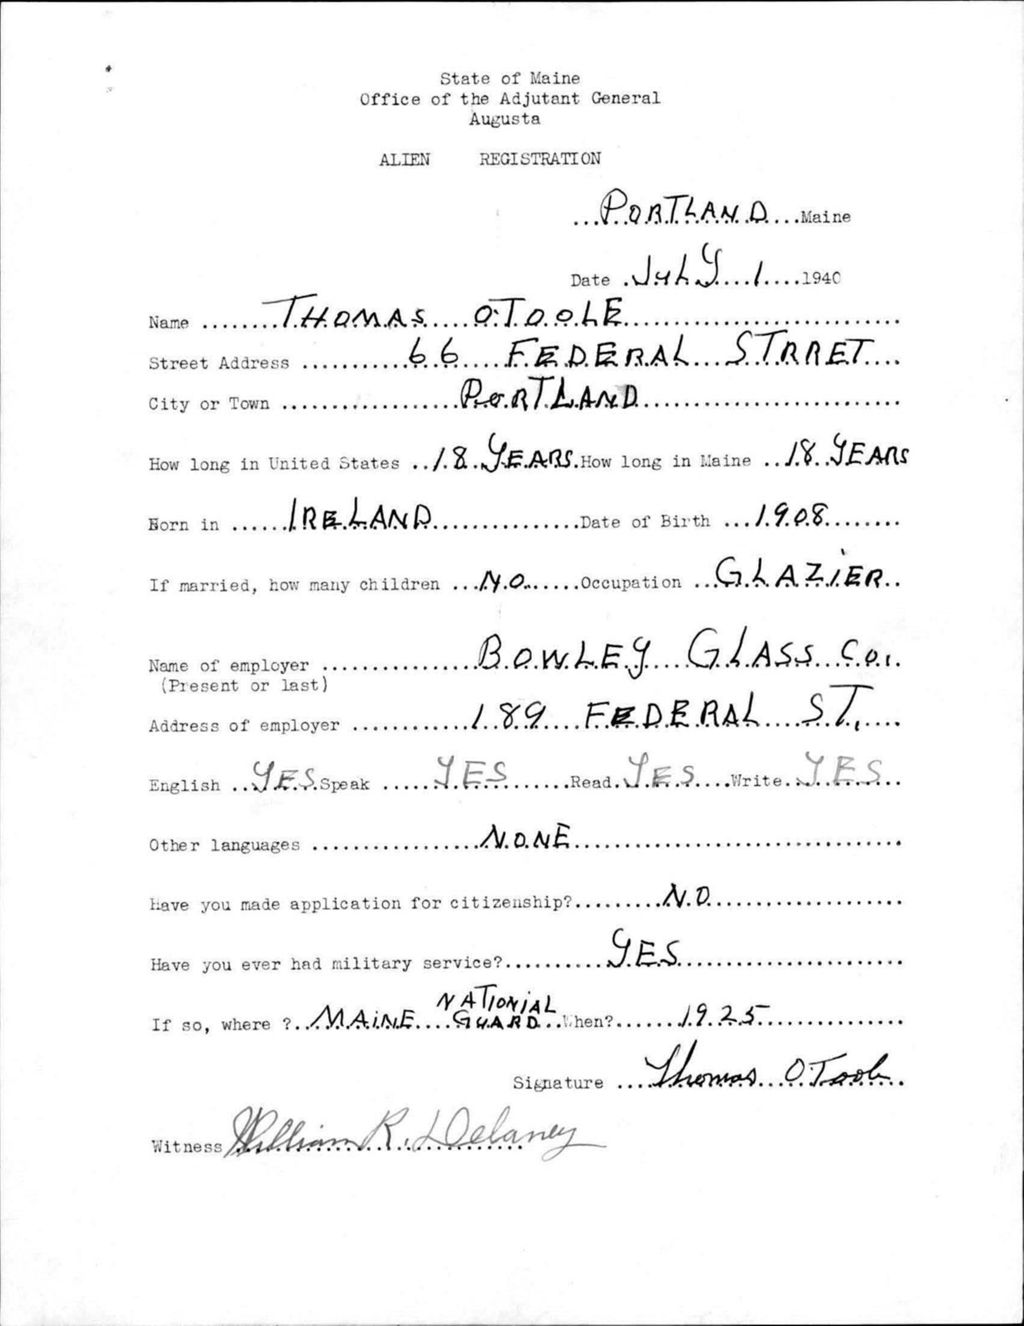 State of Maine
Office of the Adjutant General
Augusta
ALIEN REGISTRATION
...PORTLAND....Maine
Date .JULY....1.....1940
Name ........THOMAS.....O'TOOLE............................
Street Address ...........66.....FEDERAL...STRRET...
City or Town .................PORTLAND..........................
How long in United States ..18.YEARS.How long in Maine ..18..YEARS
Born in ......IRELAND...............Date of Birth ...1908........
If married, how many children ...NO.......Occupation ..GLAZIER..
Name of employer ...............BOWLEY....GLASS...CO..
(Present or last)
Address of employer ............189....FEDERAL....ST.....
English ..YES.Speak .....YES..........Read.YES....Write.YES..
Other languages .................NONE.................................
Have you made application for citizenship?.........NO....................
Have you ever had military service?..........YES.......................
NATIONIAL
If so, where ?..MAINE....GUARD..When?.......1925...............
Signature ...Thomas...O'Toole..
Witness William R. Delaney